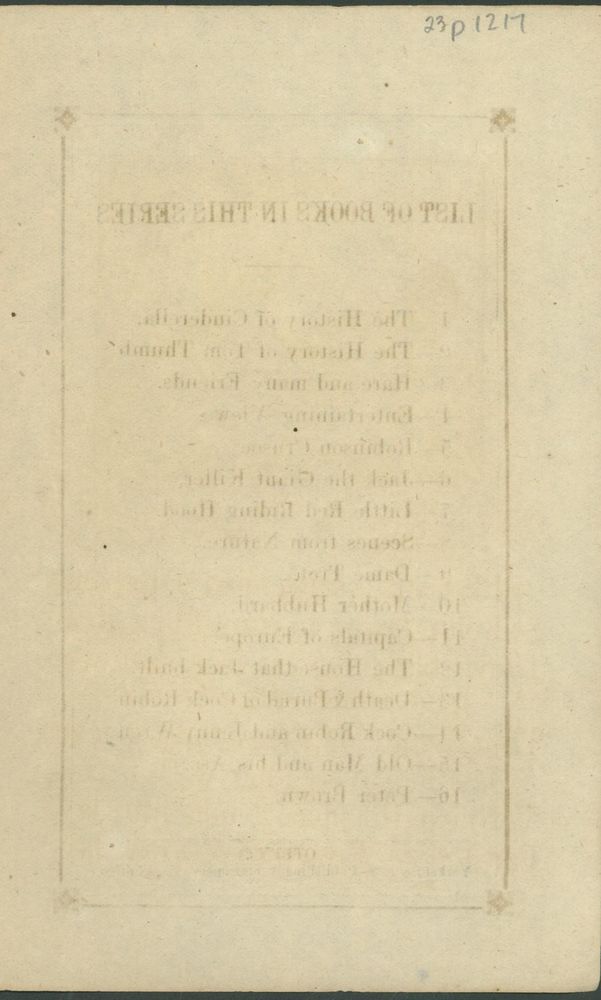 23p1217
LIST OF BOOKS IN THIS SERIES
1 The History of Cinderella.
2 The History of Tom Thumb
3 Hare and many Friends.
4— Entertaining Views
5 Robinson Crusoe
6— Jack the Giant Killer.
7 Little Red Riding Hood
Scenes from Nature
9— Dame Trot
10— Mother Hubbard
11— Capitals of Europe
12 The House that Jack built
13— Death & Burial of Cock Robin
14— Cock Robin and Jenny Wren
15— Old Man and his
16— Peter Brown.